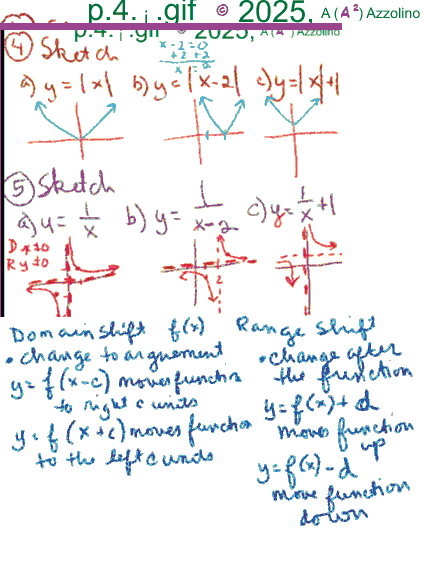 p.4. i .gif © 2025, A (A²) Azzolino
p.4. i .gif © 2025, A (A²) Azzolino
④ Sketch
x-2=0
+2 +2
x = 2
a) y=|x| b) y=|x-2| c) y=|x|+1
⑤ Sketch
a) y = 1/x b) y = 1/(x-2) c) y = 1/x +1
D x≠0
R y≠0
2
Domain Shift f(x)
• change to arguement
y=f(x-c) moves function
to right c units
y=f(x+c) moves function
to the left c units
Range Shift
• change after
the function
y=f(x)+d
moves function
up
y=f(x)-d
move function
down